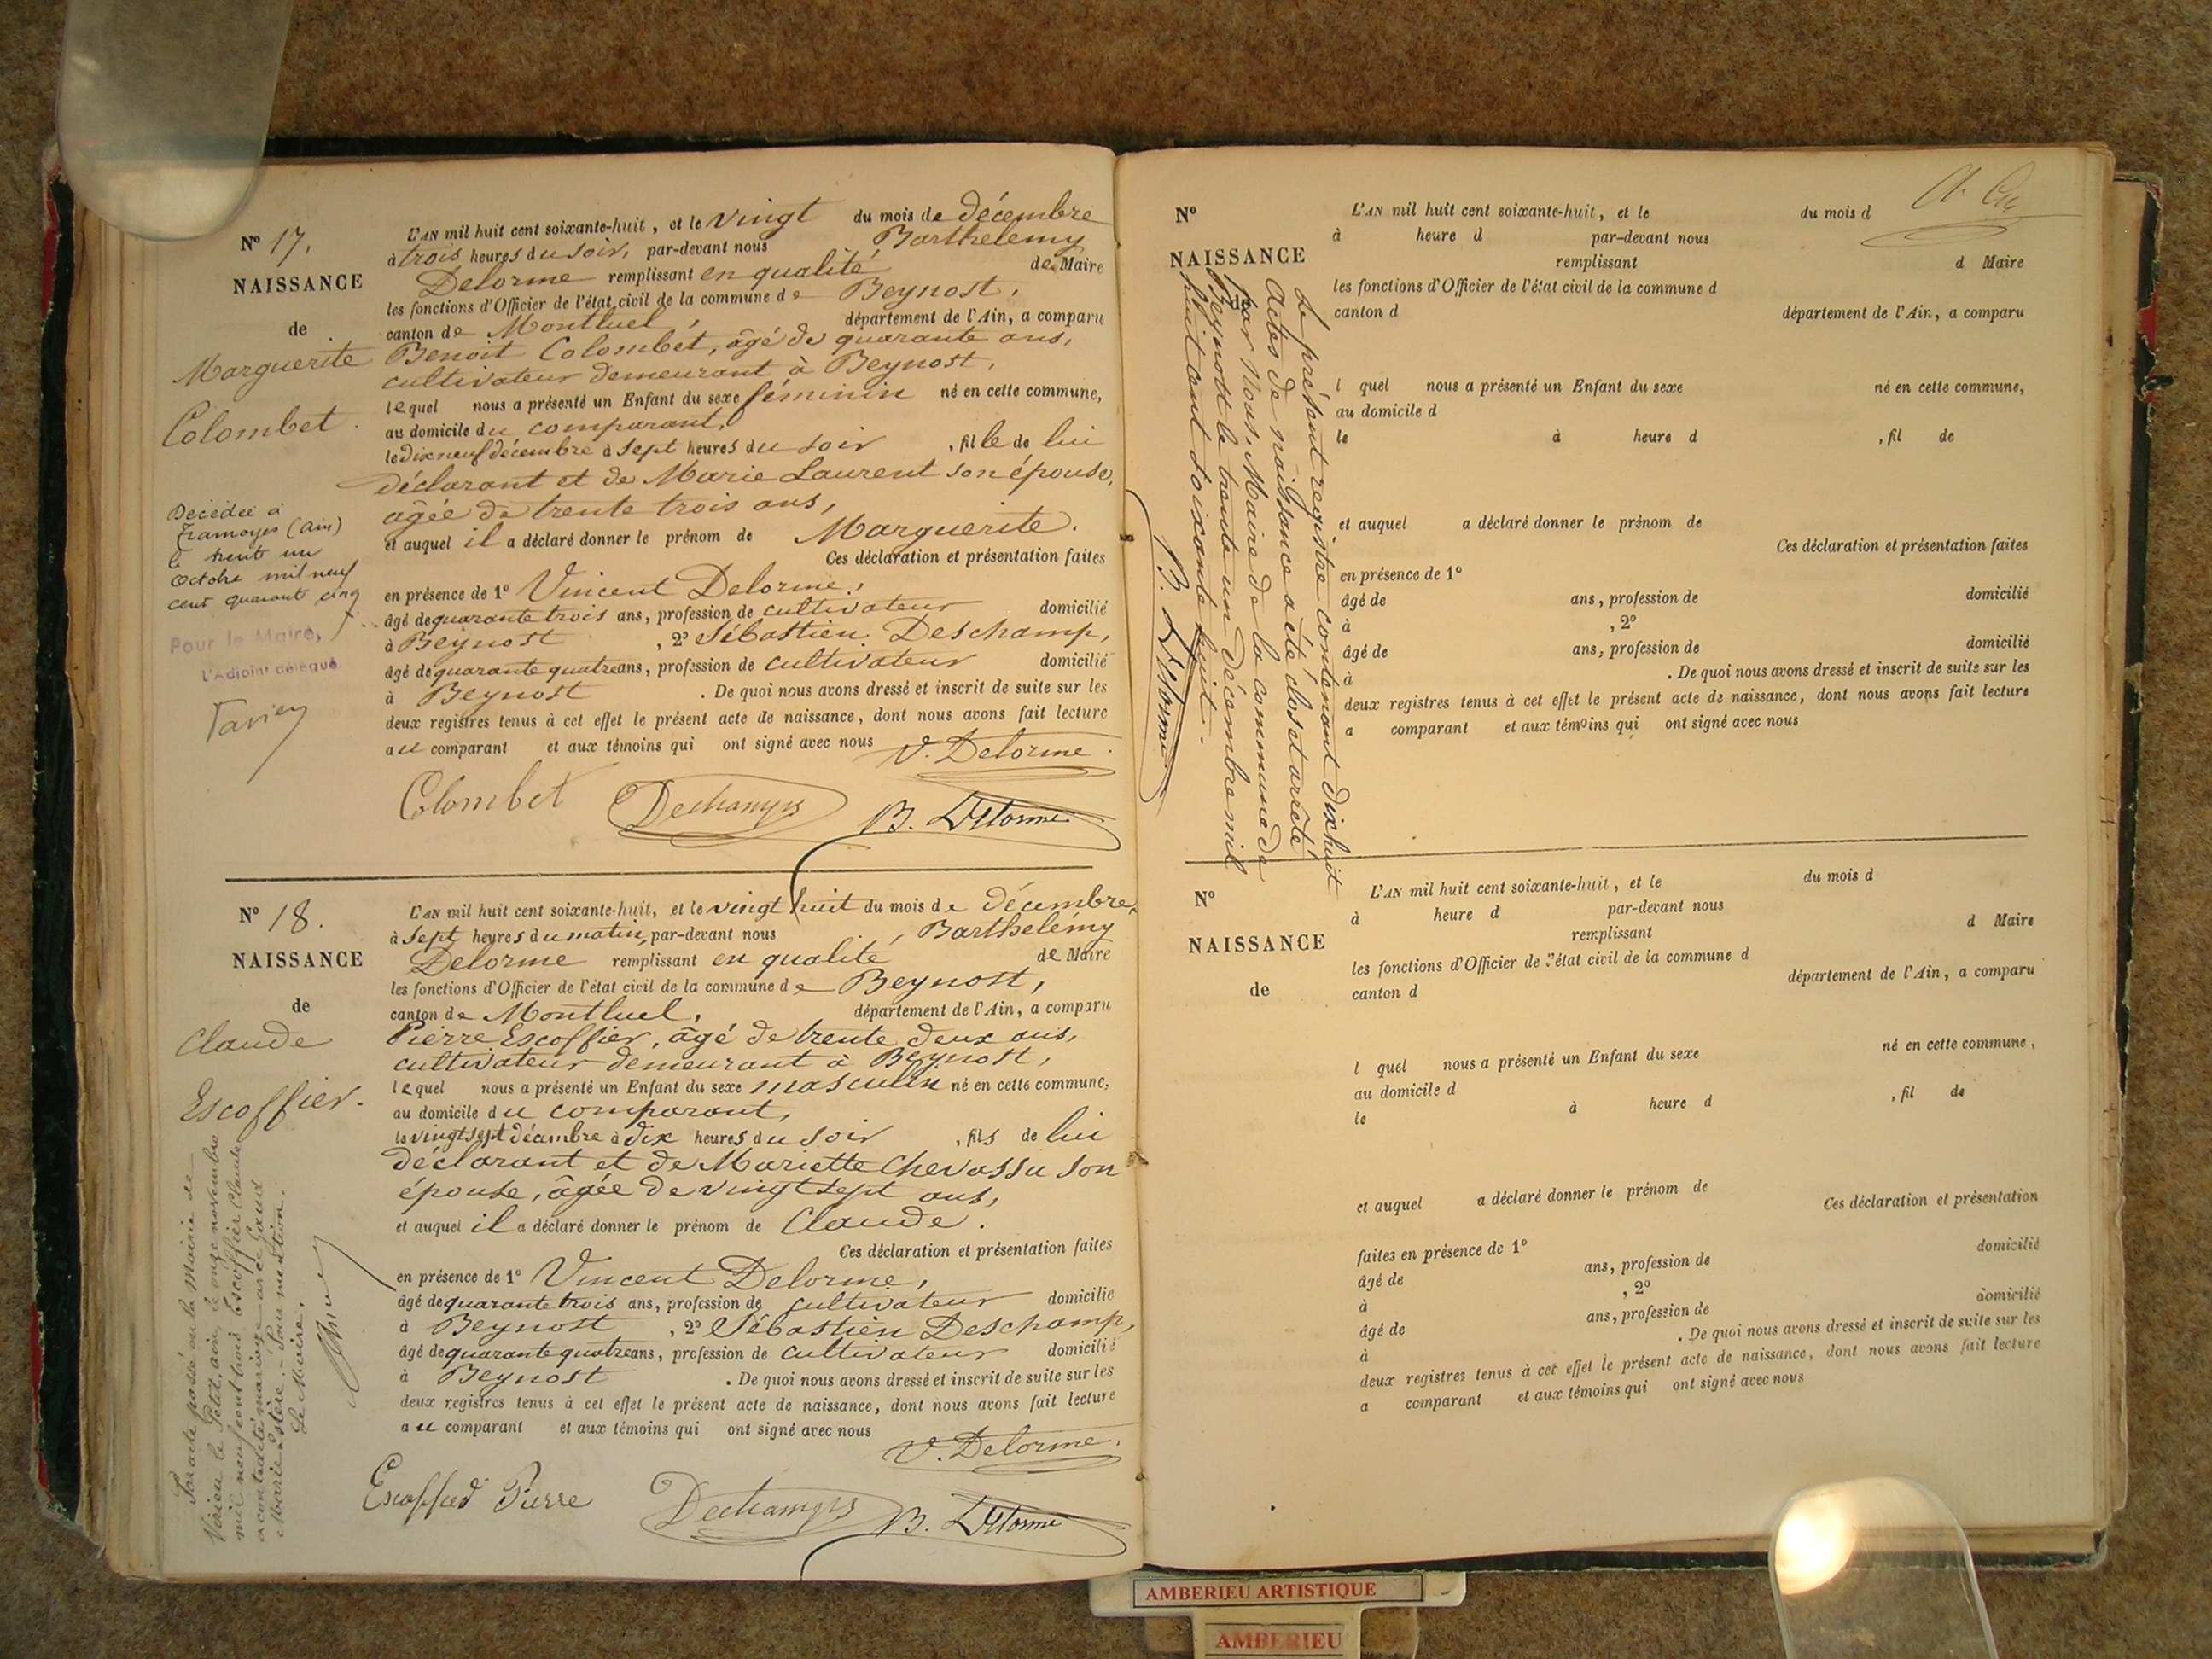 N° 17.
NAISSANCE
de
Marguerite
Colombet.
Décédée à
Tramoyes (Ain)
le trente un
Octobre mil neuf
cent quarante cinq
Pour le Maire,
l'Adjoint délégué
L'AN mil huit cent soixante-huit, et le vingt du mois de décembre
à trois heures du soir, par-devant nous Barthelemy
Delorme remplissant en qualité de Maire
les fonctions d'Officier de l'état civil de la commune de Beynost,
canton de Montluel, département de l'Ain, a comparu
Benoit Colombet, âgé de quarante ans,
cultivateur demeurant à Beynost,
lequel nous a présenté un Enfant du sexe féminin né en cette commune,
au domicile du comparant,
le dix neuf décembre à sept heures du soir, fille de lui
déclarant et de Marie Laurent son épouse,
agée de trente trois ans,
et auquel il a déclaré donner le prénom de Marguerite.
Ces déclaration et présentation faites
en présence de 1° Vincent Delorme,
âgé de quarante trois ans, profession de cultivateur domicilié
à Beynost, 2° Sébastien Deschamp,
âgé de quarante quatre ans, profession de cultivateur domicilié
à Beynost. De quoi nous avons dressé et inscrit de suite sur les
deux registres tenus à cet effet le présent acte de naissance, dont nous avons fait lecture
au comparant et aux témoins qui ont signé avec nous
V. Delorme.
Colombet Dechamps B. Delorme
N° 18.
NAISSANCE
de
Claude
Escoffier.
Par acte passé en la Mairie de
Virieu le Petit, ain, le onze novembre
mil neuf cent trois Escoffier Claude
a contracté mariage avec Gaud
Marie Estère. Pour mention.
Le Maire.
L'AN mil huit cent soixante-huit, et le vingt huit du mois de décembre,
à sept heures du matin, par-devant nous, Barthelémy
Delorme remplissant en qualité de Maire
les fonctions d'Officier de l'état civil de la commune de Beynost,
canton de Montluel, département de l'Ain, a comparu
Pierre Escoffier, âgé de trente deux ans,
cultivateur demeurant à Beynost,
lequel nous a présenté un Enfant du sexe masculin né en cette commune,
au domicile du comparant,
le vingt sept décembre à dix heures du soir, fils de lui
déclarant et de Mariette Chevassu son
épouse, âgée de vingt sept ans,
et auquel il a déclaré donner le prénom de Claude.
Ces déclaration et présentation faites
en présence de 1° Vincent Delorme,
âgé de quarante trois ans, profession de cultivateur domicilié
à Beynost, 2° Sébastien Deschamp,
âgé de quarante quatre ans, profession de cultivateur domicilié
à Beynost. De quoi nous avons dressé et inscrit de suite sur les
deux registres tenus à cet effet le présent acte de naissance, dont nous avons fait lecture
au comparant et aux témoins qui ont signé avec nous
V. Delorme.
Escoffier Pierre Dechamps B. Delorme
N°
NAISSANCE
de
Le présent registre contenant dix huit
actes de naissance a été clos et arrêté
par Nous, Maire de la commune de
Beynost le trente un décembre mil
huit cent soixante huit.
B. Delorme
L'AN mil huit cent soixante-huit, et le du mois d
à heure d par-devant nous
remplissant d Maire
les fonctions d'Officier de l'état civil de la commune d
canton d département de l'Ain, a comparu
l quel nous a présenté un Enfant du sexe né en cette commune,
au domicile d
le à heure d , fil de
et auquel a déclaré donner le prénom de
Ces déclaration et présentation faites
en présence de 1°
âgé de ans, profession de domicilié
à , 2°
âgé de ans, profession de domicilié
à . De quoi nous avons dressé et inscrit de suite sur les
deux registres tenus à cet effet le présent acte de naissance, dont nous avons fait lecture
a comparant et aux témoins qui ont signé avec nous
N°
NAISSANCE
de
L'AN mil huit cent soixante-huit, et le du mois d
à heure d par-devant nous
remplissant d Maire
les fonctions d'Officier de l'état civil de la commune d
canton d département de l'Ain, a comparu
l quel nous a présenté un Enfant du sexe né en cette commune,
au domicile d
le à heure d , fil de
et auquel a déclaré donner le prénom de
Ces déclaration et présentation
faites en présence de 1°
âgé de ans, profession de domicilié
à , 2°
âgé de ans, profession de domicilié
à . De quoi nous avons dressé et inscrit de suite sur les
deux registres tenus à cet effet le présent acte de naissance, dont nous avons fait lecture
a comparant et aux témoins qui ont signé avec nous
AMBERIEU ARTISTIQUE
AMBERIEU